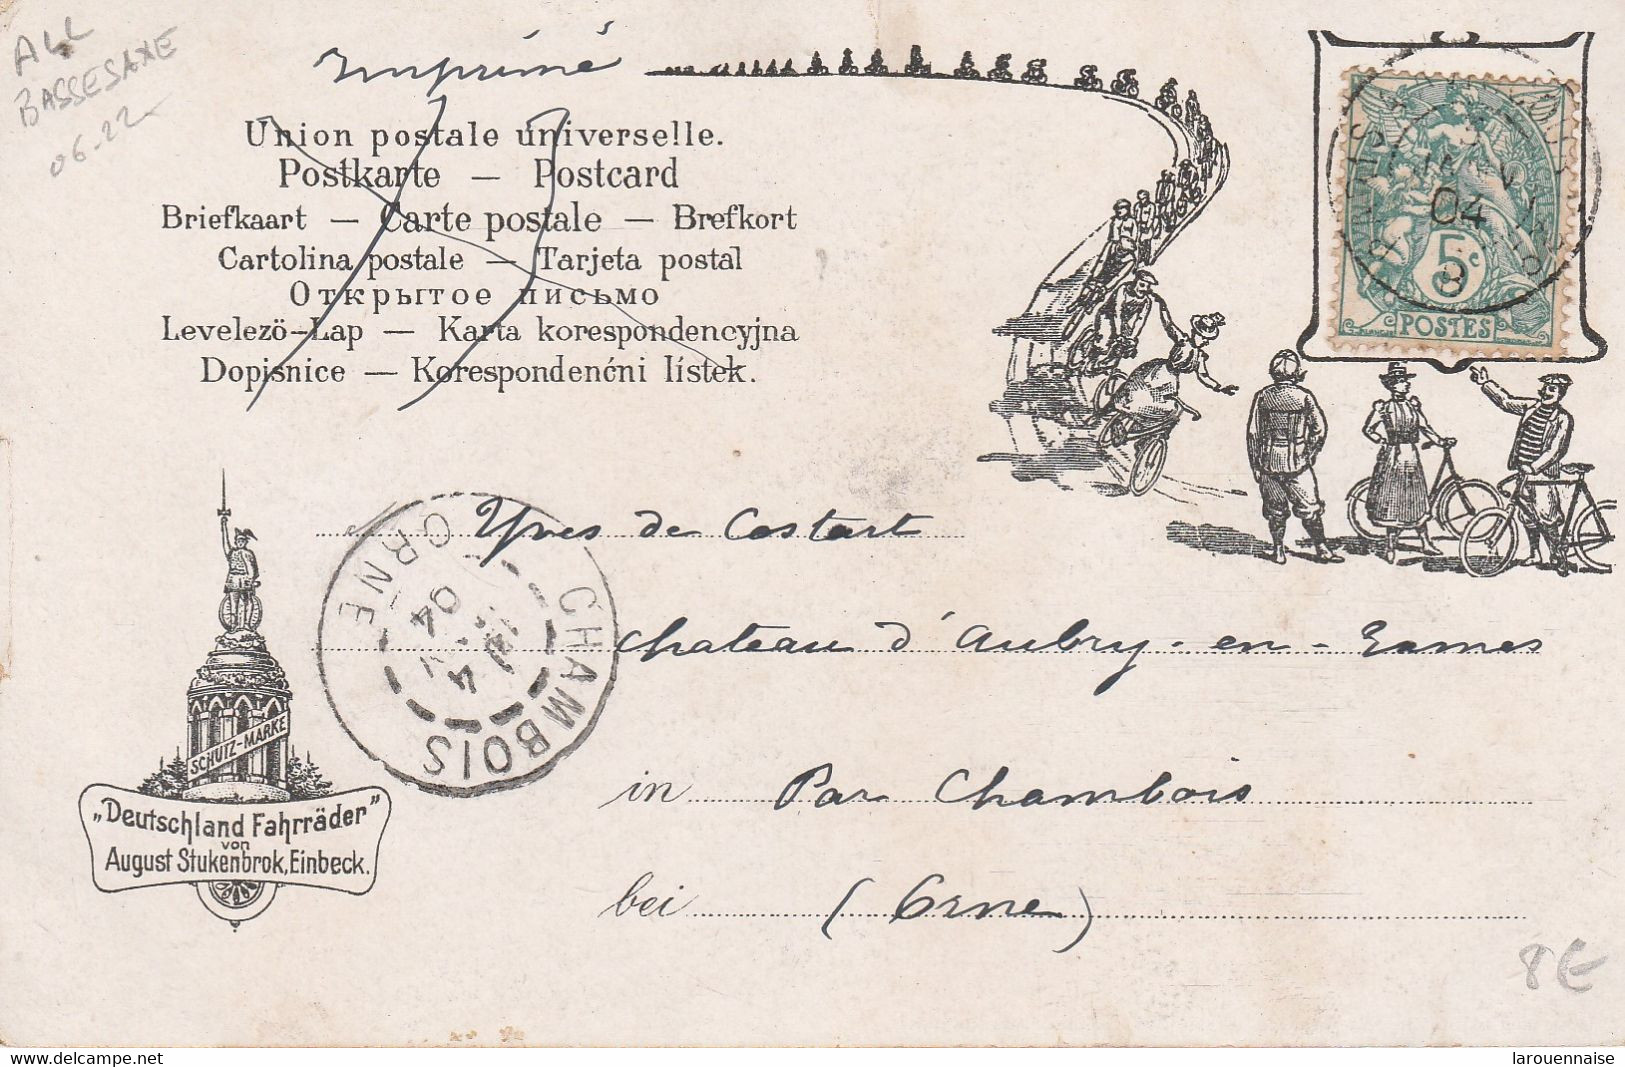 ALL
BASSESAXE
06-22
Imprimé
Union postale universelle.
Postkarte — Postcard
Briefkaart — Carte postale — Brefkort
Cartolina postale — Tarjeta postal
Открытое письмо
Levelezö-Lap — Karta korespondencyjna
Dopisnice — Korespondenćni lístek.
04
5c
POSTES
Yves de Costart
Chateau d'Aubry-en-Exmes
in Par Chambois
bei (Orne)
CHAMBOIS
ORNE
4
04
SCHUTZ-MARKE
„Deutschland Fahrräder”
von
August Stukenbrok, Einbeck.
8€
www.delcampe.net
larouennaise